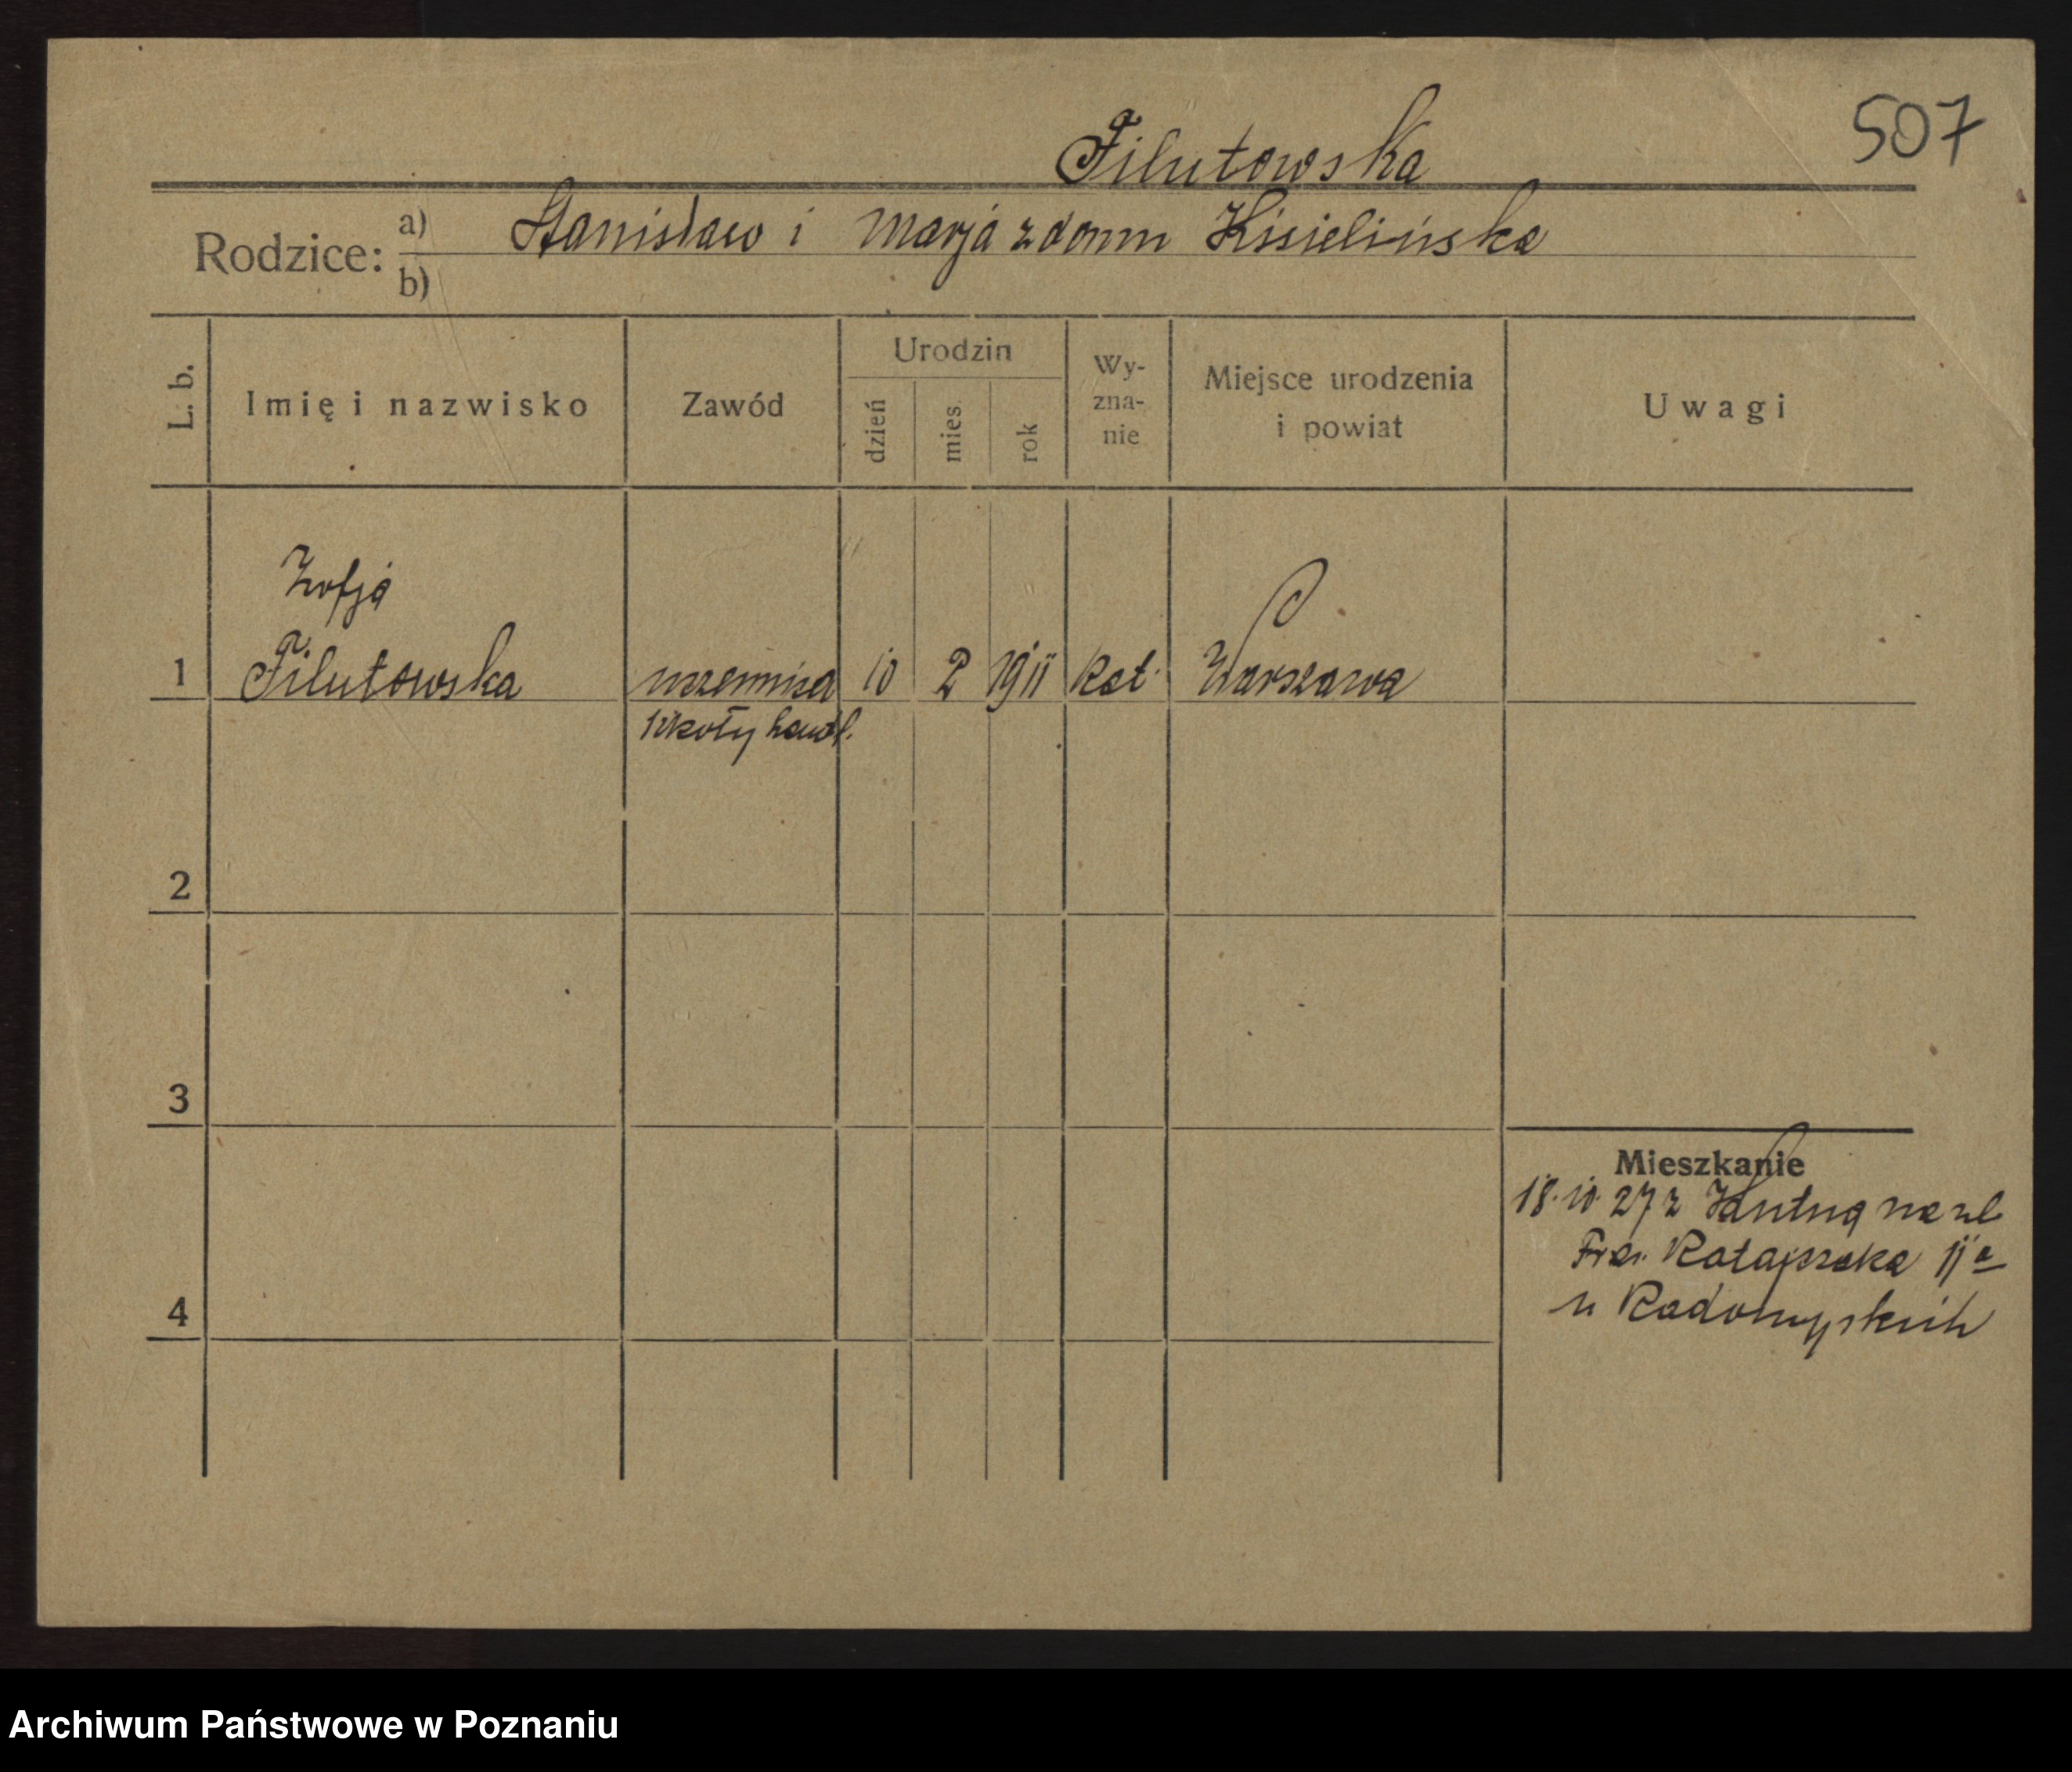 507
Filutowska
Rodzice: a) Stanisław i Marja z domu Kisielińska
b)
L. b. Imię i nazwisko Zawód Urodzin dzień mies. rok Wy-zna-nie Miejsce urodzenia i powiat Uwagi
Zofja
1 Filutowska uczennica 10 2 1911 kat. Warszawa
szkoły handl.
2
3
Mieszkanie
18.10.27 z Kutna na ul
Fr. Ratajczaka 11a
4 u Radomyskich
Archiwum Państwowe w Poznaniu